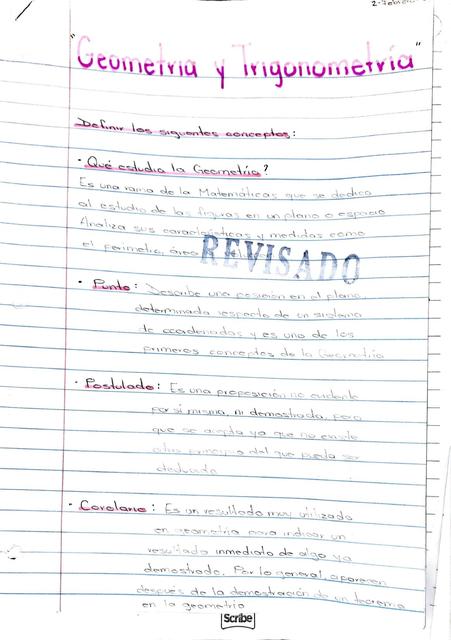 2-Febrero
"Geometría y Trigonometría"
Definir los siguientes conceptos:
• Qué estudia la Geometría?
Es una rama de la Matemáticas que se dedica
al estudio de las figuras en un plano o espacio
Analiza sus características y medidas como
el perímetro, área
REVISADO
• Punto: Describe una posición en el plano,
determinada respecto de un sistema
de coordenadas y es uno de los
primeros conceptos de la Geometría
• Postulado: Es una proposición no evidente
por sí misma, ni demostrada, pero
que se acepta ya que no existe
otro principio del que pueda ser
deducida
• Corolario: Es un resultado muy utilizado
en geometría para indicar un
resultado inmediato de algo ya
demostrado. Por lo general, aparecen
después de la demostración de un teorema
en la geometría
Scribe